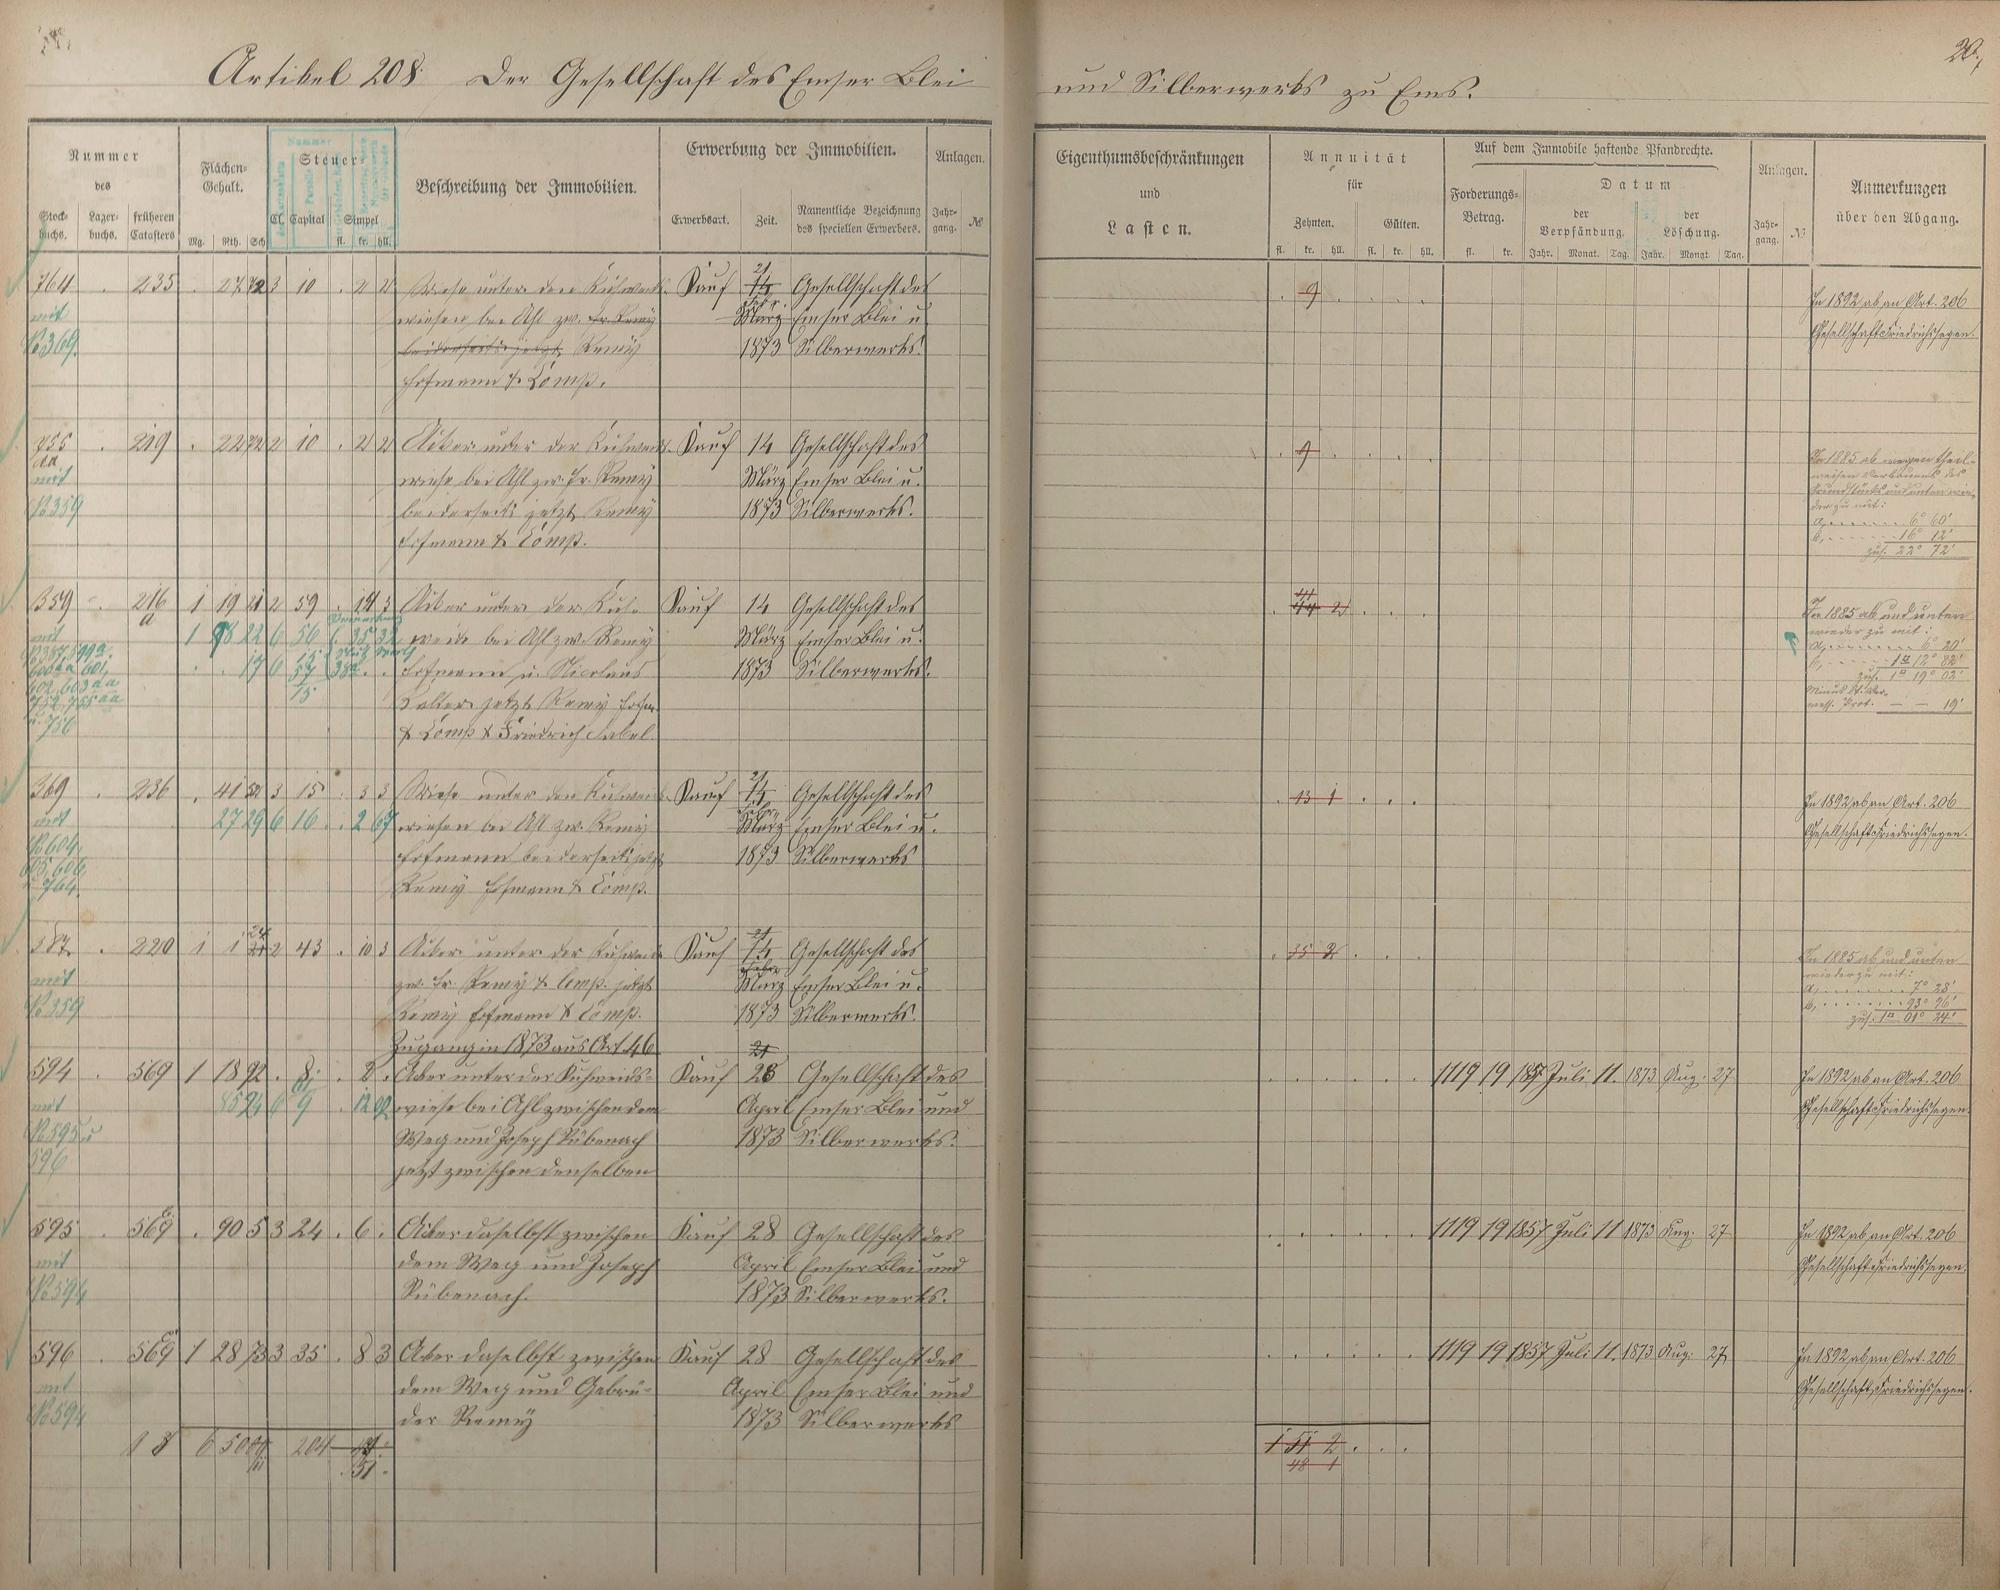 Artikel 208. Der Gesellschaft des Emser Blei
und Silberwerks zu Ems.
20.
Nummer
des
Stock-
buchs.
Lager-
buchs.
früheren
Catasters
Flächen-
Gehalt.
Mg. Rth. Sch
Steuer
Cl. Capital Simpel
fl. kr. hll.
Beschreibung der Immobilien.
Erwerbung der Immobilien.
Erwerbsart. Zeit.
Namentliche Bezeichnung
des speciellen Erwerbers.
Anlagen.
Jahr-
gang.
№
Eigenthumsbeschränkungen
und
Lasten.
Annuität
für
Zehnten. Gülten.
fl. kr. hll. fl. kr. hll.
Auf dem Immobile haftende Pfandrechte.
Forderungs-
Betrag.
fl. kr.
Datum
der
Verpfändung.
der
Löschung.
Jahr. Monat. Tag. Jahr. Monat. Tag.
Anlagen.
Jahr-
gang.
№
Anmerkungen
über den Abgang.
764 . 235 . 27 72 3 10 . 2 2 Wiese unter den Kuhweids- Kauf 14 Gesellschaft des
mit wiesen bei Ahl zw. Fr. Remy März Emser Blei u.
№ 369. beiderseits jetzt Remy 1873 Silberwerks.
Hofmann & Comp.
9
In 1892 ab an Art. 206
Gesellschaft Friedrichssegen.
755 . 219 . 22 72 2 10 . 2 2 Acker unter der Kuhweids- Kauf 14 Gesellschaft des
aa
mit wiese bei Ahl zw. Fr. Remy März Emser Blei u.
№ 359 beiderseits jetzt Remy 1873 Silberwerks.
Hofmann & Comp.
9
In 1885 ab wegen theil-
weisen Verkaufs des
Grundstücks und unten wie-
der zu mit:
a, 6° 60'
b, 16° 12'
zus. 22° 72'
359 . 216 1 19 21 2 59 . 14 3 Acker unter der Kuh- Kauf 14 Gesellschaft des
a
mit 1 98 22 6 56 weide bei Ahl zw. Remy März Emser Blei u.
Hofmann u. Nicolaus 1873 Silberwerks.
602, 603 aa Kalter jetzt Remy Hofm.
u. 756 & Comp & Friedrich Sabel.
In 1885 ab und unten
wieder zu mit:
a, 6° 20'
b, 1 12° 82'
zus. 1 19° 02'
19'
369 . 236 . 41 52 3 15 . 3 3 Wiese unter den Kuhweids- Kauf 14 Gesellschaft des
mit 27 29 6 16 . 2 67 wiesen bei Ahl zw. Remy März Emser Blei u.
№ 604, Hofmann beiderseits jetzt 1873 Silberwerks
605, 606, Remy Hofmann & Comp.
u. 764.
13 1
In 1892 ab an Art. 206
Gesellschaft Friedrichssegen.
387 . 220 1 1 24 2 43 . 10 3 Acker unter der Kuhweide Kauf 14 Gesellschaft des
mit zw. Fr. Remy & Comp. jetzt März Emser Blei u.
№ 359 Remy Hofmann & Comp. 1873 Silberwerks.
Zugang in 1873 aus Art. 46
35 2
In 1885 ab und unten
wieder zu mit:
a, 7° 28'
b, 93° 96'
zus. 1 01° 24'
594 . 569 1 18 92 . 8 . 2 . Acker unter der Kuhweids- Kauf 28 Gesellschaft des
mit 85 94 6 wiese bei Ahl zwischen dem April Emser Blei und
№ 595 u Weg und Joseph Rübenach 1873 Silberwerks.
596 jetzt zwischen denselben
1119 19 1857 Juli 11. 1873 Aug. 27
In 1892 ab an Art. 206
Gesellschaft Friedrichssegen.
595 . 569 . 90 5 3 24 . 6 . Acker daselbst zwischen Kauf 28 Gesellschaft des
mit dem Weg und Joseph April Emser Blei und
№ 594 Rübenach. 1873 Silberwerks.
1119 19 1857 Juli 11 1873 Aug. 27
In 1892 ab an Art. 206
Gesellschaft Friedrichssegen.
596 . 569 1 28 73 3 35 . 8 3 Acker daselbst zwischen Kauf 28 Gesellschaft des
mit dem Weg und Gebrü- April Emser Blei und
№ 594 der Remy 1873 Silberwerks
1119 19 1857 Juli 11. 1873 Aug. 27
In 1892 ab an Art. 206
Gesellschaft Friedrichssegen.
18 6 50 204 51
1 51 2
48 1